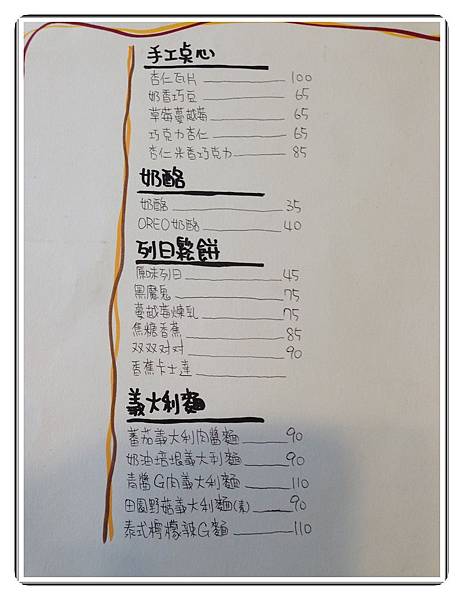 手工桌心
杏仁瓦片 100
奶香巧豆 65
草莓蔓越莓 65
巧克力杏仁 65
杏仁米香巧克力 85
奶酪
奶酪 35
OREO奶酪 40
列日鬆餅
原味列日 45
黑魔鬼 75
蔓越莓煉乳 75
焦糖香蕉 85
双双对对 90
香蕉卡士達
義大利麵
蕃茄義大利肉醬麵 90
奶油培根義大利麵 90
青醬G肉義大利麵 110
田園野菇義大利麵(素) 90
泰式檸檬辣G麵 110